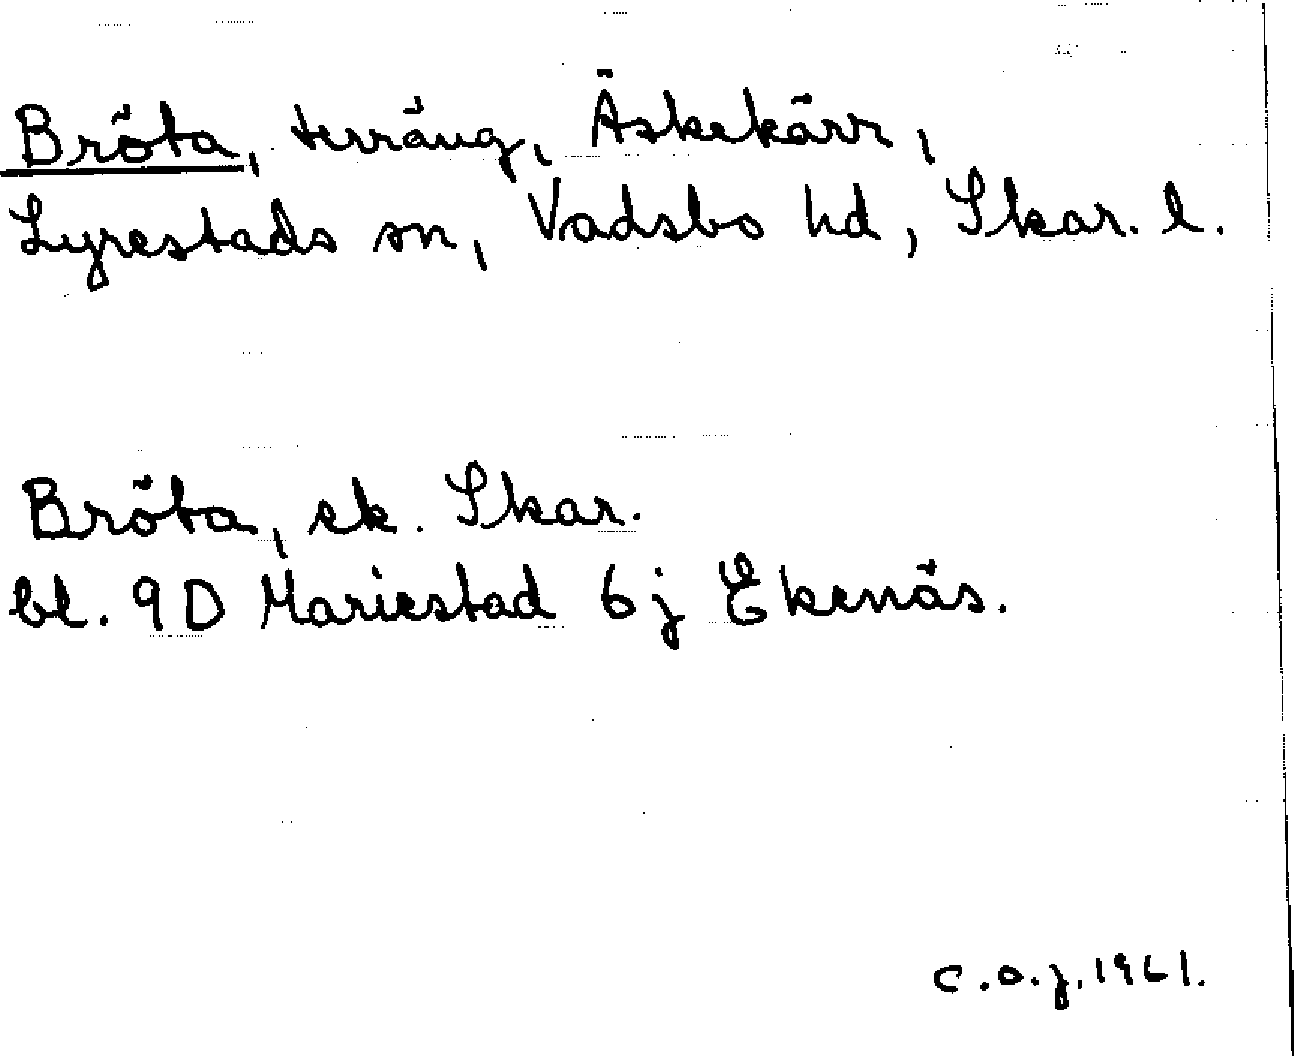 Bröta, terräng, Äskekärr,
Lyrestads sn, Vadsbo hd, Skar. l.
Bröta, ek. Skar.
bl. 9D Mariestad 6j Ekenäs.
c.o.j. 1961.